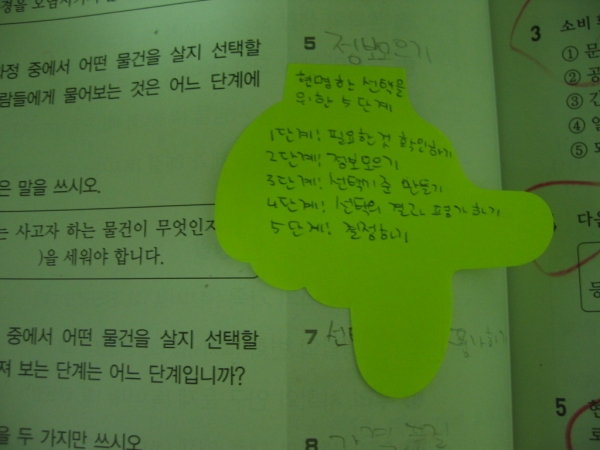 과정 중에서 어떤 물건을 살지 선택할
람들에게 물어보는 것은 어느 단계에
은 말을 쓰시오.
는 사고자 하는 물건이 무엇인지
)을 세워야 합니다.
중에서 어떤 물건을 살지 선택할
져 보는 단계는 어느 단계입니까?
을 두 가지만 쓰시오
5 정보모으기
현명한 선택을
위한 5단계
1단계! 필요한것 확인하기
2단계! 정보모으기
3단계! 선택기준 만들기
4단계! 선택의 결과 평가하기
5단계! 결정하기
7
8
3 소비
①
②
③
④
⑤
다음
5